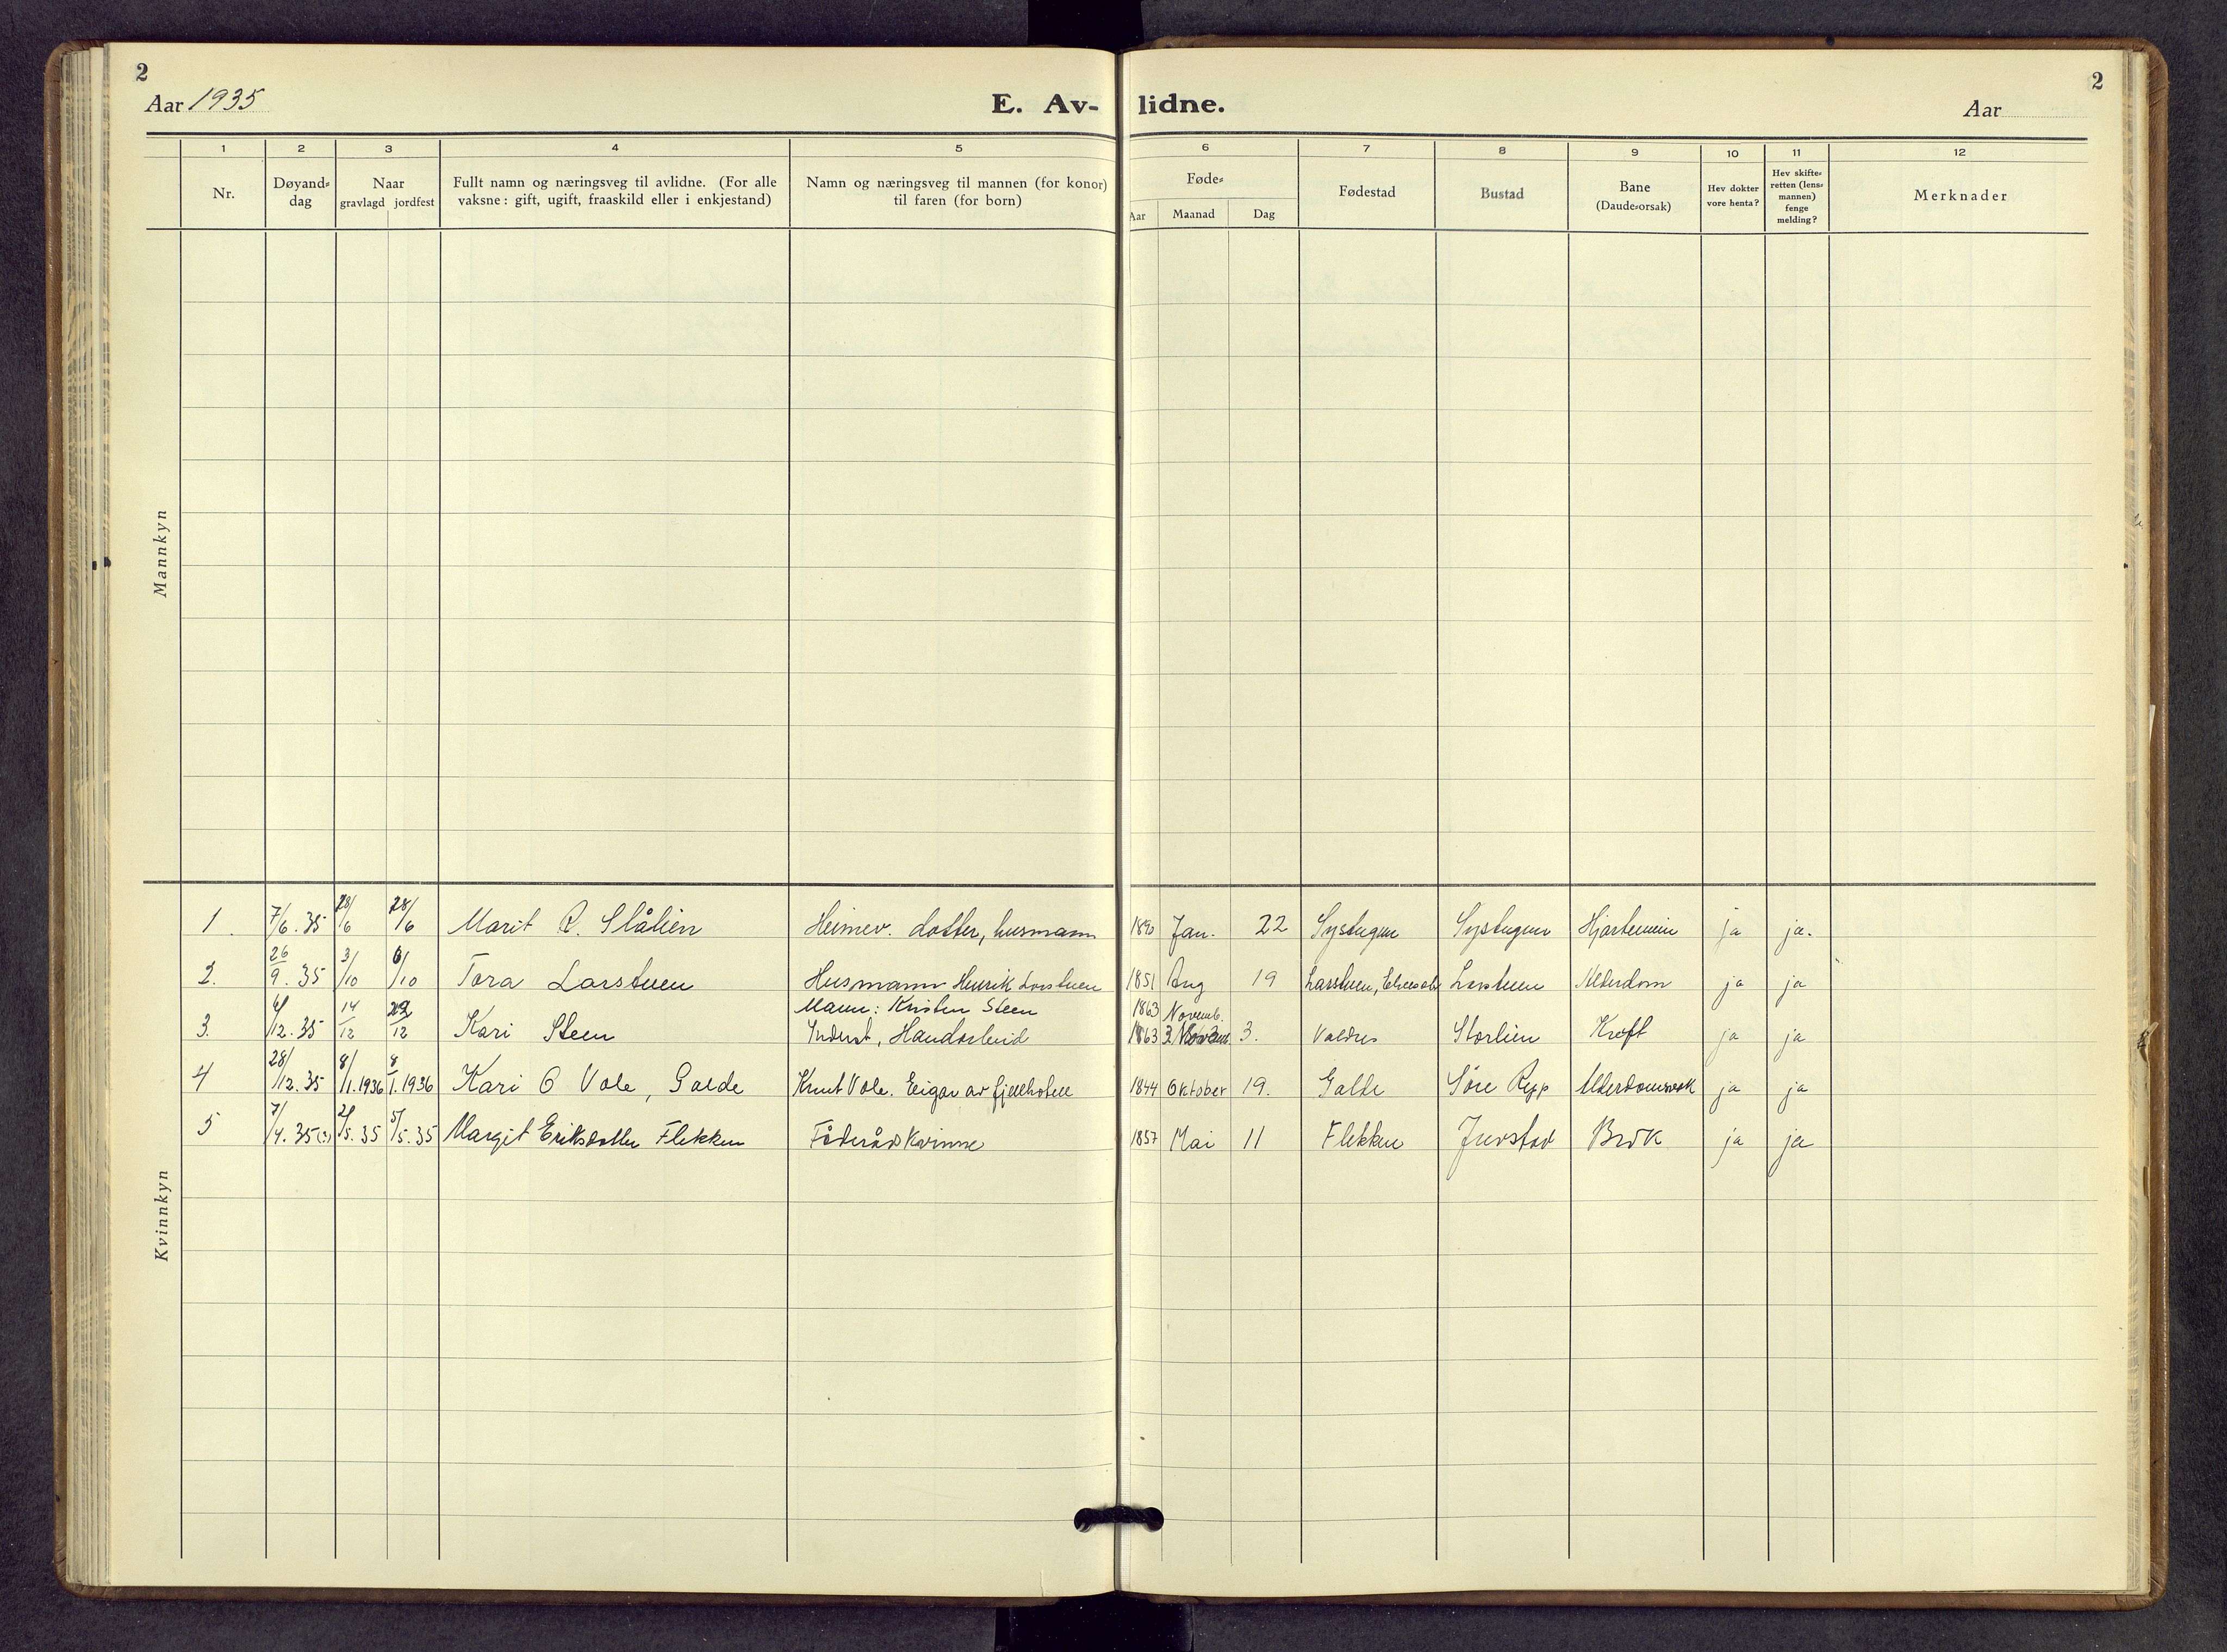 2
2
Aar 1935
E. Av-
lidne.
Aar
1
2
3
4
5
6
7
8
9
10
11
12
Nr.
Døyand-
dag
Naar
gravlagd jordfest
Fullt namn og næringsveg til avlidne. (For alle
vaksne: gift, ugift, fraaskild eller i enkjestand)
Namn og næringsveg til mannen (for konor)
til faren (for born)
Føde-
Aar Maanad Dag
Fødestad
Bustad
Bane
(Daude-orsak)
Hev dokter
vore henta?
Hev skifte-
retten (lens-
mannen)
fenge
melding?
Merknader
Mannkyn
Kvinnkyn
1. 7/6.35 28/6 28/6 Marit R. Slålien Heimev. dotter, husmann 1890 Jan. 22 Systugun Systugun Hjartemein ja ja.
2. 26/9.35 3/10 6/10 Tora Larstuen Husmann Henrik Larstuen 1851 Aug 19 Larstuen, Larstuen Alderdom ja ja
Mann: Kristen Steen 1863 Novemb.
3. 6/12.35 14/12 /12 Kari Steen Inderst, Handarbeid 1863 3. Valdres Storlien Kreft ja ja
4 28/12.35 8/1.1936 8/1.1936 Kari O Vole, Galde Knut Vole. Eigar av fjellhotell 1844 Oktober 19. Galde Søre Repp ja ja
5 7/4.35(?) 2/5.35 5/5.35 Margit Eriksdotter Flekken Føderådskvinne 1857 Mai 11 Flekken Juvstad Brok ja ja